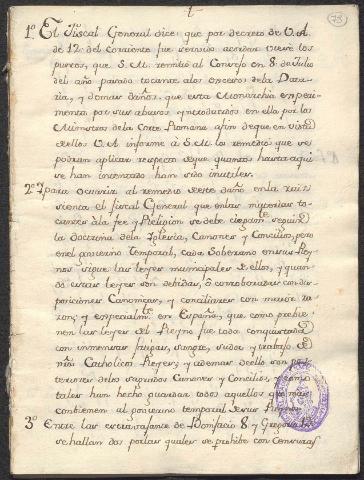 1
(73)
1º. El Fiscal General dice: que por decreto de V. A.
de 12 del corriente fue servido acordar viese los
puntos, que S. M. remitió al Consejo en 8 de Julio
del año pasado tocante a los excesos de la Data-
ria, y demas daños, que esta Monarchia experi-
menta por sus abusos introducidos en ella por los
Ministros de la Corte Romana afin de que en vista
de ellos V. A. informe à S. M. los remedios que se
podran aplicar respecto de que quantos hasta aqui
se han intentado han sido inutiles.
2º. Y para ocurrir al remedio de este daño en la raiz
sienta el fiscal General que en las materias to-
cantes à la fee y Religion se debe ciegamte. seguir
la Doctrina de la Iglesia, Canones y Concilios, pero
en el govierno temporal, cada Soberano en sus Rey-
nos sigue las leyes municipales de ellos, y quan-
do estas leyes son deducidas, ò corroboradas con dis-
posiciones Canonicas, y conciliares con mayor ra-
zon; y especialmte. en España, que como previe-
nen las leyes del Reyno fue toda conquistada
con inmensas fatigas, sangre, sudor, y trabajo de
ntros Catholicos Reyes, y ademas de ello son pro-
tectores de los sagrados Canones y Concilios, y como
tales han hecho guardar todos aquellos que mas
combienen al govierno temporal de sus Reynos.
3º. Entre las extravagantes de Bonifacio 8 y Gregorio
se hallan dos por las quales se prohibe con Censuras